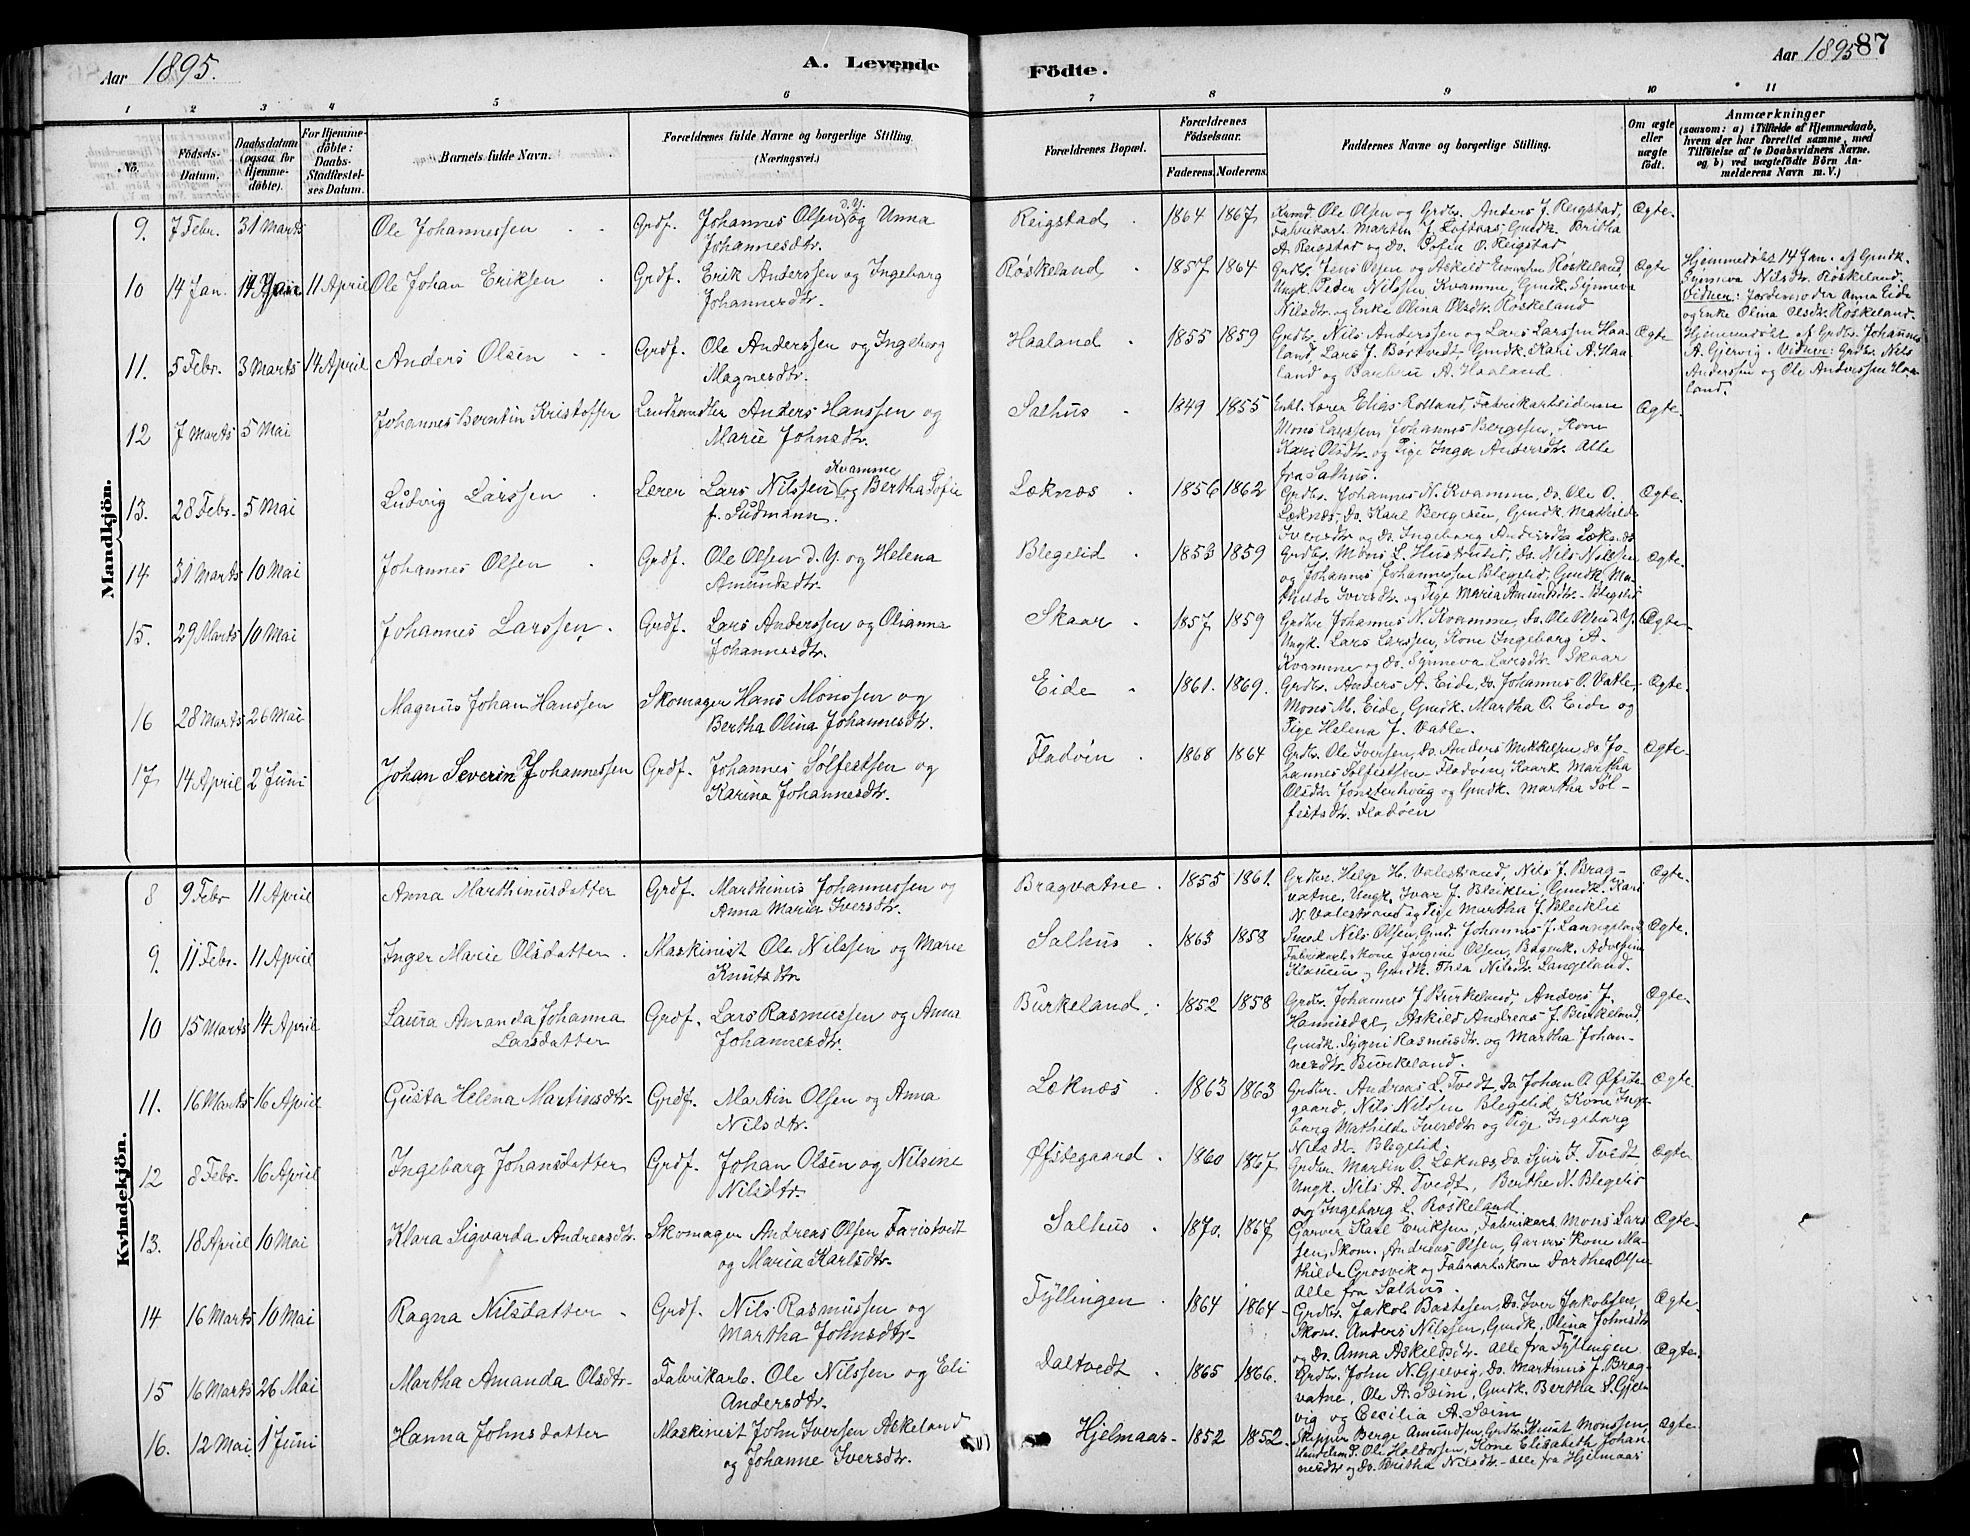 Aar 1895.
A. Levende
Födte.
Aar 1895
87
1 2 3 4 5 6 7 8 9 10 11
No.
Födsels-Datum.
Daabsdatum (ogsaa for Hjemme-döbte).
For Hjemme-döbte: Daabs-Stadfæstel-ses Datum.
Barnets fulde Navn.
Forældrenes fulde Navne og borgerlige Stilling. (Næringsvei.)
Forældrenes Bopæl.
Forældrenes Födselsaar.
Faderens. Moderens.
Faddernes Navne og borgerlige Stilling.
Om ægte eller uægte födt.
Anmærkninger
(saasom: a) i Tilfælde af Hjemmedaab, hvem der har forrettet samme, med Tilföielse af to Daabsvidners Navne. og b) ved uægtefödte Börn An-melderens Navn m. V.)
Mandkjön.
9. 7 Febr. 31 Marts Ole Johannessen Grdf. Johannes Olsen d. Y. og Unna Johannesdtr. Reigstad 1864 1867 Ole Olsen og Grdbr. Anders J. Reigstad, Fabrikarb. Martin J. Loftaas Gmdk. Britha A. Reigstad og do. Sofia O. Reigstad Ægte
10 14 Jan. 11 April Ole Johan Eriksen Grdf. Erik Anderssen og Ingeborg Johannesdtr. Röskeland 1857 1864 Grdbr. Jens Olsen og Askild Röskeland, Ungk. Peder Nilssen Kvamme, Gmdk. Synneva Nilsdtr. og Enke Olina Olsdtr. Röskeland Ægte Hjemmedøbt 14 Jan. af Gmdk. Synneva Nilsdtr. Röskeland. Vidner: Jordemoder Anna Eide og Enke Olina Olsdtr. Röskeland.
11. 5 Febr. 3 Marts 14 April Anders Olsen Grdf. Ole Anderssen og Ingeborg Magnesdtr. Haaland 1855 1859 Grdbr. Nils Anderssen og Lars Larssen Haa-land, Lars J. Börtvedt Gmdk. Kari A. Haa-land og Barbru A. Haaland Ægte Hjemmedøbt af Grdbr. Johannes A. Gjervig. Vidner: Grdbr. Nils Anderssen og Ole Anderssen Haa-land.
12 7 Marts 5 Mai Johannes Berntin Kristoffer Landhandler Anders Hanssen og Marie Johnsdtr. Salhus 1849 1855 Lærer Elias Rolland, Fabrikarbeiderne Mons Larssen, Johannes Bergesen, Kone Kari Olsdtr. og Pige Inga Andersdtr. Alle fra Salhus. Ægte
13. 28 Febr. 5 Mai Ludvig Larssen Lærer Lars Nilssen Kvamme og Bertha Sofie f. Sudmann. Læknæs 1856 1862 Grdbr. Johannes N. Kvamme, do. Ole O. Læknæs, do. Karl Bergesen, Gmdk. Mathilde Iversdtr og do. Ingeborg Andersdtr Læknæs Ægte
14 31 Marts 10 Mai Johannes Olsen Grdf. Ole Olsen d. Y. og Helena Amundsdtr. Blegelid 1853 1859 Grdbr. Mons L. Husetufet, do. Nils Nilssen og Johannes Johannessen Blegelid, Gmdk. Ma-thilde Iversdtr og Pige Maria Amundsdtr. Blegelid Ægte
15. 29 Marts 10 Mai Johannes Larssen Grdf. Lars Anderssen og Olianna Johannesdtr. Skaar 1857 1859 Grdbr Johannes N. Kvamme, do. Ole Olsen d. Y. Ungk. Lars Larssen, Kone Ingeborg A. Kvamme og do. Synneva Larsdtr. Skaar Ægte
16 28 Marts 26 Mai Magnus Johan Hanssen Skomager Hans Monssen og Bertha Olina Johannesdtr. Eide 1861. 1869. Grdbr. Anders A. Eide, do. Johannes O. Vatle, Mons M. Eide, Gmdk. Martha O. Eide og Pige Helena J. Vatle. Ægte
17 14 April 2 Juni Johan Severin Johannessen Grdf. Johannes Sölfestsen og Karina Johannesdtr. Fladöin 1868 1864 Grdbr. Ole Iversen, do. Anders Mikkelsen, do. Jo-hannes Sölfestsen Fladöin, Kaark. Martha Olsdtr. og Gmdk. Martha Söl-festsdtr. Fladöen Ægte
Kvindekjön.
8 9 Febr 11 April Anna Marthinusdatter Grdf. Marthinus Johannessen og Anna Maria Iversdtr. Bragvatne 1855 1861. Grdbr. Helge H. Valestrand, Nils J. Brag-vatne, Ungk. Ivar J. Bleiklie, Gmdk. Kari N. Valestrand og Pige Martha J. Bleiklie Ægte
9. 11 Febr. 11 April Inger Marie Olsdatter Maskinist Ole Nilssen og Marie Knutsdtr. Salhus 1863 1858 Smed Nils Olsen, Johannes J. Langeland Fabrikarb. kone Jorgine Olsen, og Gmdk. Thea Nilsdtr. Langeland. Ægte
10 15 Marts 14 April Laura Amanda Johanna Larsdatter Grdf. Lars Rasmussen og Anna Johannesdtr. Burkeland 1852 1858 Grdbr. Johannes J. Burkeland, Anders J. Hannisdal, Askild Andreas J. Burkeland, Gmdk. Sygni Rasmusdtr. og Martha Johan-nesdtr. Burkeland. Ægte
11. 16 Marts 16 April Gusta Helena Martinsdtr. Grdf. Martin Olsen og Anna Nilsdtr. Læknæs 1863 1863 Grdbr. Andreas L. Tvedt, do. Johan O. Öfste-gaard, Nils Nilssen Blegelid, Kone Inge-borg Mathilde Iversdtr og Pige Ingeborg Nilsdtr. Blegelid. Ægte
12 8 Febr. 16 April Ingeborg Johansdatter Grdf. Johan Olsen og Nilsine Nilsdtr. Öfstegaard 1860 1867 Grdbr Martin O. Læknæs, do. Sjur J. Tvedt, Ungk. Nils A. Tvedt, Berthe N. Blegelid og Ingeborg L. Röskeland. Ægte
13. 18 April 10 Mai Klara Sigvarda Andreasdtr. Skomager Andreas Olsen Faristvedt og Maria Karlsdtr. Salhus 1870. 1867 Garver Karl Eriksen, Fabrikarb. Mons Lars-sen, Skom. Andreas Olsen, Garvers Kone Ma-thilde Grosvik og Fabrikarbs kone Dorthea Olsen Alle fra Salhus. Ægte
14 16 Marts 10 Mai Ragna Nilsdatter Grdf. Nils Rasmussen og Martha Johnsdtr. Fyllingen 1864 1864 Grdbr. Jakob Bastesen, do. Iver Jakobsen, Skom. Anders Nilssen, Gmdk. Olina Johnsdtr og do. Anna Askildsdtr. alle fra Fyllingen Ægte
15 16 Marts 26 Mai Martha Amanda Olsdtr. Fabrikarb. Ole Nilssen og Eli Andersdtr. Daltvedt 1865 1866. Grdbr. John N. Gjervig, do. Martinus J. Brag-vatne, Ole A. Seim, Gmdk. Bertha S. Gjer-vig og Cecilia A. Seim Ægte
16. 12 Mai 1 Juni Hanna Johnsdatter Maskinist John Iversen Askeland og Johanne Iversdtr. Hjelmaas 1852 1852. Skipper Berge Amundsen, Grdbr. Knut Monssen, Ole Haldorsen, Kone Elisabeth Johan-nesdtr og do. Britha Nilsdtr. alle fra Hjelmaas Ægte